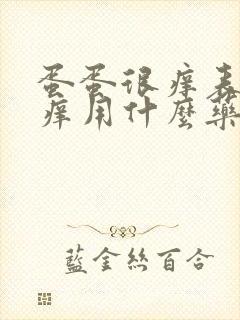 蛋蛋很痒表
痒用什麼藥
藍金絲百合